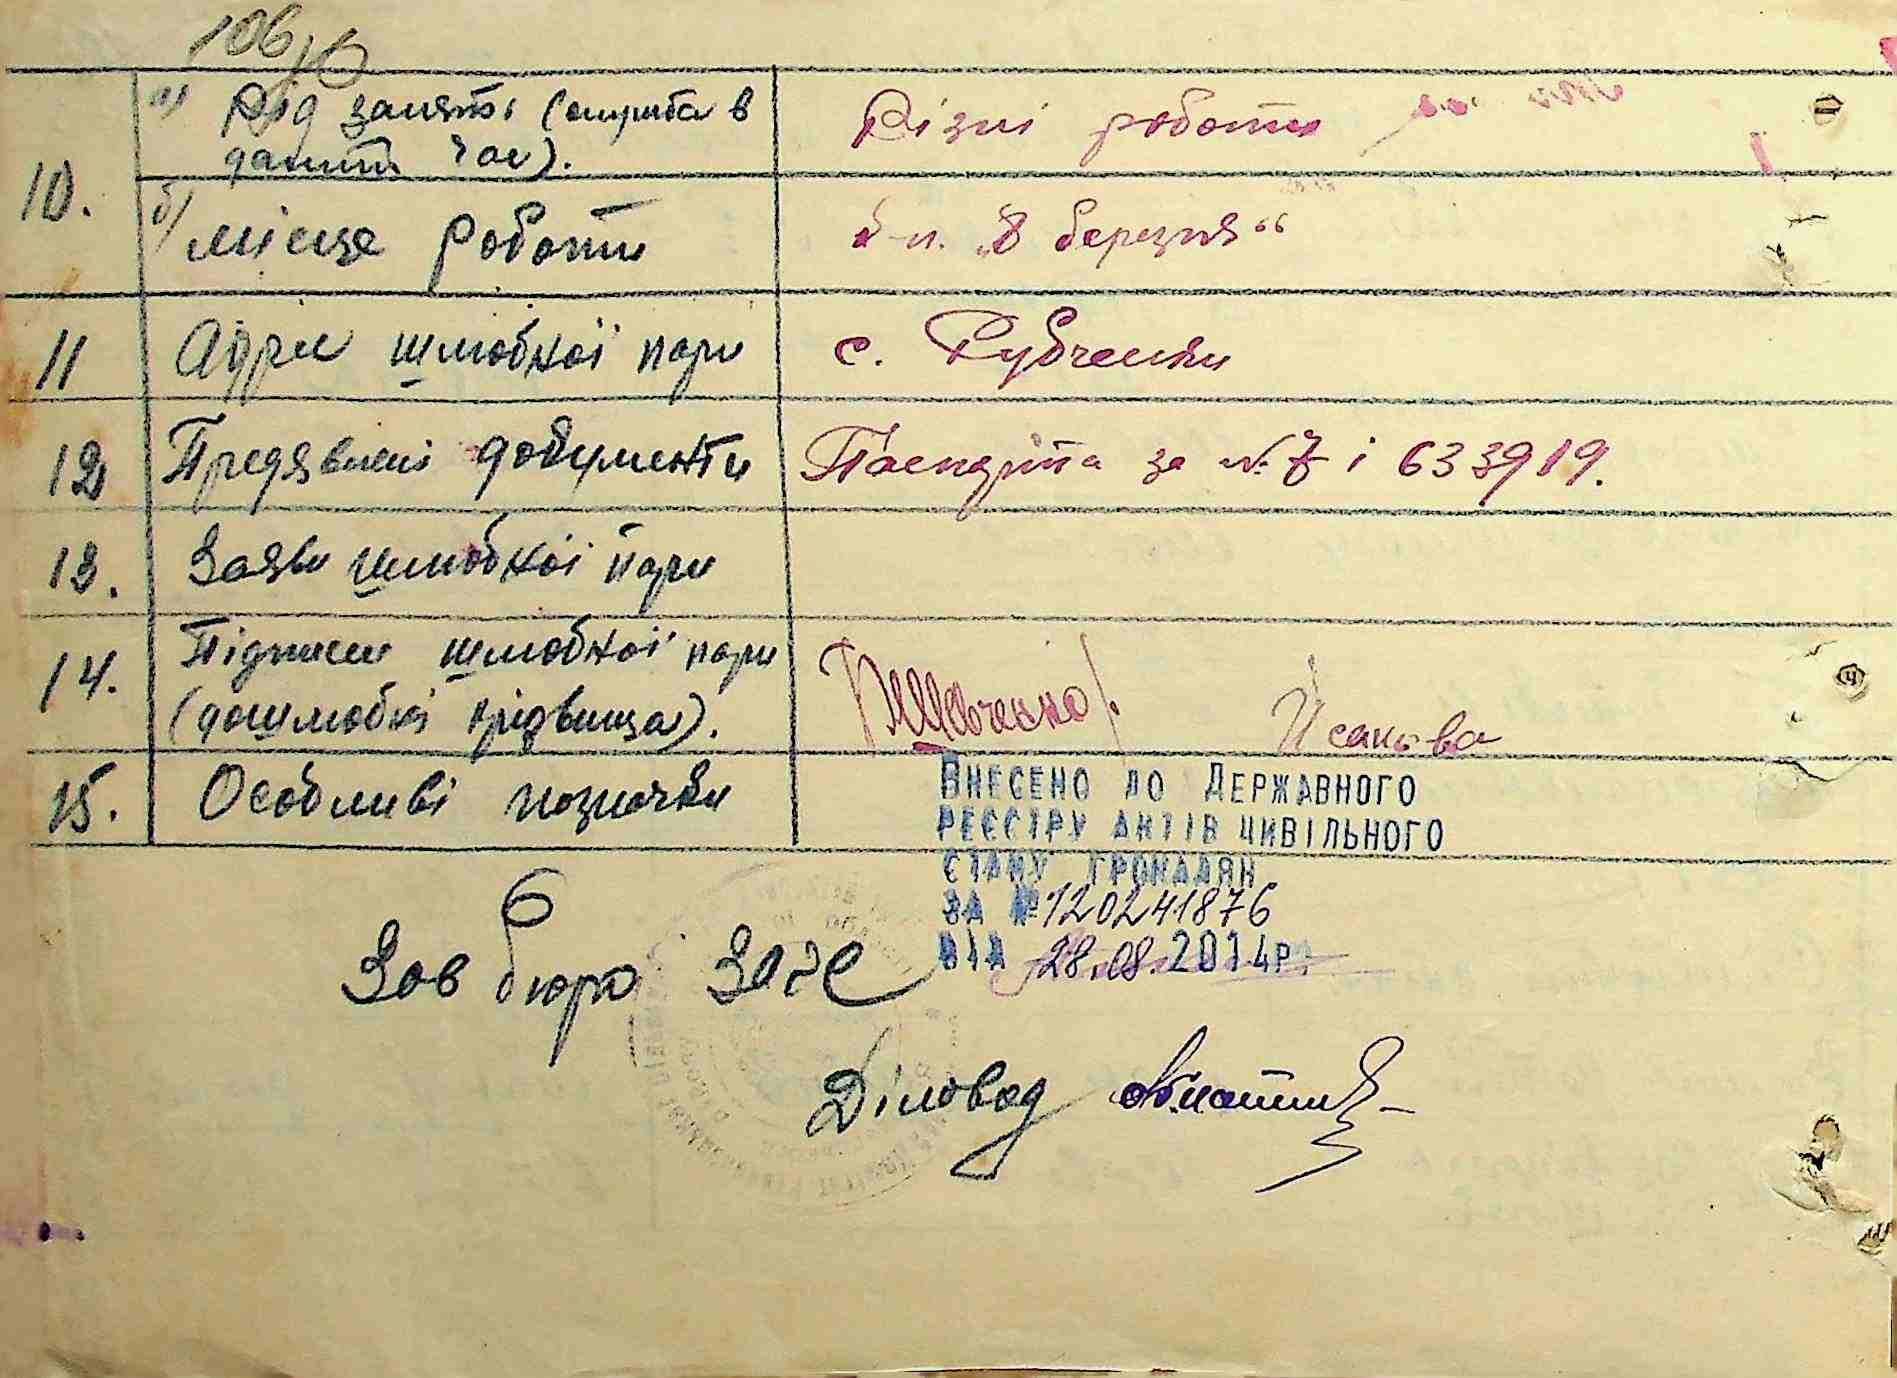 106
10.
а) Рід занять (служба в
даний час).
Різні роботи
б) місце роботи
к-п. „8 березня“
11 Адреса шлюбної пари
с. Рубченки
12 Предявлені документи
Паспорта за № 7 і 633919.
13. Заяви шлюбної пари
14. Підписи шлюбної пари
(дошлюбні прізвища).
Шевченко
Ісакова
15. Особливі позначки
Внесено до Державного
реєстру актів цивільного
стану громадян
за № 120241876
від 28.08.2014р.
Зав бюро ЗАГС
Діловод